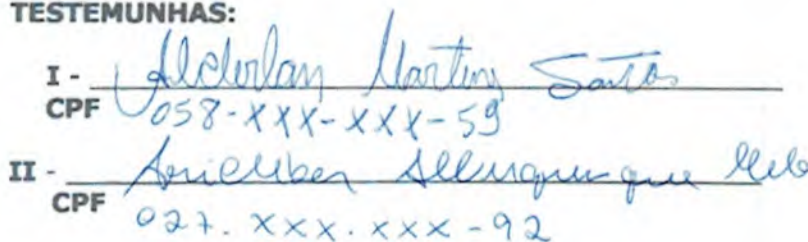 TESTEMUNHAS:
I - Martins Santos
CPF 058-XXX-XXX-59
II - Albuquerque Melo
CPF 027.XXX.XXX-92